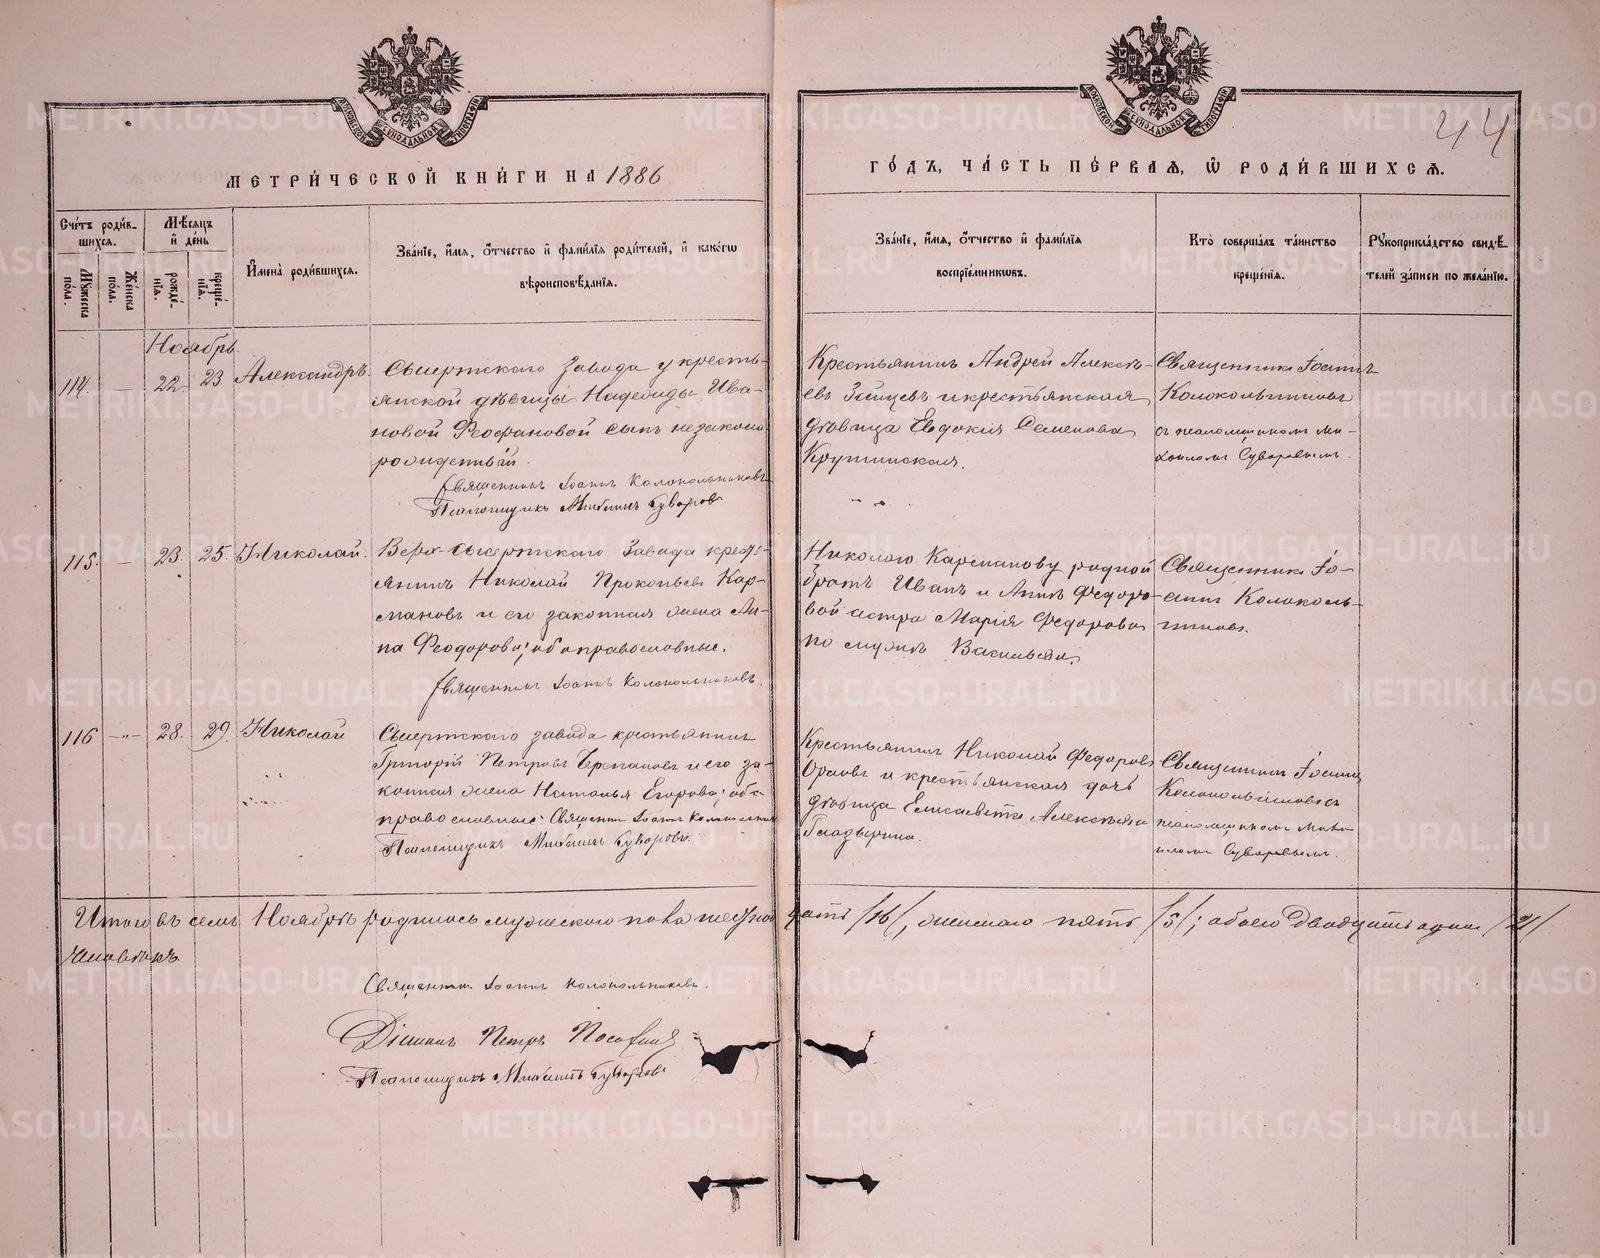 МОСКОВСКОЙ СѴНОДАЛЬНОЙ ТИПОГРАФІИ
МОСКОВСКОЙ СѴНОДАЛЬНОЙ ТИПОГРАФІИ
44
МЕТРИ́ЧЕСКОЙ КНИ́ГИ НА 1886
ГО́ДЪ, ЧА́СТЬ ПЕ́РВАЯ, Ѡ РОДИ́ВШИХСѦ.
Сче́тъ роди́в-
шихся.
Му́жеска по́ла.
Же́нска по́ла.
Мѣ́сяцъ
и҆ де́нь
рожде́нїя.
креще́нїя.
И҆мена̀ роди́вшихся.
Зва́нїе, и҆́мя, ѻ҆́тчество и҆ фами́лїя роди́телей, и҆ како́гѡ
вѣроисповѣ́данїя.
Зва́нїе, и҆́мя, ѻ҆́тчество и҆ фами́лїя
воспрїе́мникѡвъ.
Кто̀ соверша́лъ та́инство
креще́нїя.
Рꙋкоприкла́дство свидѣ́-
телей за́писи по жела́нїю.
Ноябрь.
114. — 22. 23. Александръ.
Сысертскаго завода у кресть-
янской дѣвицы Надежды Ива-
новой Феофановой сынъ незаконно
рожденный.
Священникъ Іоаннъ Колокольниковъ
Псаломщикъ Михаилъ Суворовъ
Крестьянинъ Андрей Алексѣ-
евъ Зайцевъ и крестьянская
дѣвица Евдокія Семенова
Крутинская.
Священникъ Іоаннъ
Колокольниковъ
съ псаломщикомъ Ми-
хаиломъ Суворовымъ.
115. — 23. 25. Николай.
Верх-Сысертскаго завода кресть-
янинъ Николай Прокопьевъ Кар-
мановъ и его законная жена Ан-
на Феодорова; оба православные.
Священникъ Іоаннъ Колокольниковъ.
Николаю Карманову родной
братъ Иванъ и Аннѣ Федоро-
вой сестра Марія Федорова
по мужѣ Васильева.
Священникъ Іо-
аннъ Колоколь-
никовъ.
116 —"— 28. 29. Николай
Сысертскаго завода крестьянинъ
Григорій Петровъ Черепановъ и его за-
конная жена Наталья Егорова; оба
православные: Священникъ Іоаннъ Колокольник
Псаломщикъ Михаилъ Суворовъ.
Крестьянинъ Николай Федоровъ
Орловъ и крестьянская дочь
дѣвица Елисавета Алексѣева
Гладырина.
Священникъ Іоаннъ
Колокольниковъ съ
псаломщикомъ Миха-
иломъ Суворовымъ.
Итого въ семъ Ноябрѣ родилось мужескаго пола шестнадцать /16/, женскаго пять /5/; обоего двадцать одинъ /21/
человѣкъ.
Священникъ Іоаннъ Колокольниковъ.
Діаконъ Петръ
Псаломщикъ Михаилъ Суворовъ
METRIKI.GASO-URAL.RU